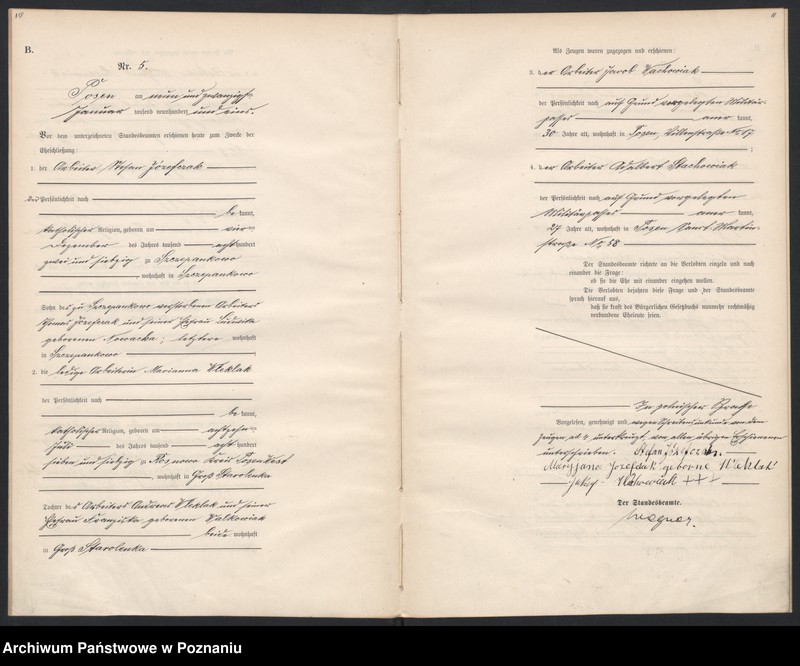 10
B.
Nr. 5.
Posen am neun und zwanzigsten
Januar tausend neunhundert und eins.
Vor dem unterzeichneten Standesbeamten erschienen heute zum Zwecke der
Eheschließung:
1. der Arbeiter Stefan Józefczak
der Persönlichkeit nach
be kannt,
katholischer Religion, geboren am vierten
Dezember des Jahres tausend acht hundert
zwei und siebzig zu Szczepankowo
, wohnhaft in Szczepankowo
Sohn des zu Szczepankowo verstorbenen Arbeiters
Thomas Józefczak und seiner Ehefrau Ludwika
geborenen Nowacka; letztere wohnhaft
in Szczepankowo
2. die ledige Arbeiterin Marianna Kleklak
der Persönlichkeit nach
be kannt,
katholischer Religion, geboren am achtzehnten
Juli des Jahres tausend acht hundert
sieben und siebzig zu Rosnowo Kreis Posen West
, wohnhaft in Groß Starolenka
Tochter des Arbeiters Andreas Kleklak und seiner
Ehefrau Franziska geborenen Walkowiak
beide wohnhaft
in Groß Starolenka
11
Als Zeugen waren zugezogen und erschienen:
3. der Arbeiter Jacob Wachowiak
der Persönlichkeit nach auf Grund vorgelegten Militär-
passes aner kannt,
30 Jahre alt, wohnhaft in Posen, No 17
;
4. der Arbeiter Adalbert Stachowiak
der Persönlichkeit nach auf Grund vorgelegten
Militärpasses aner kannt,
27 Jahre alt, wohnhaft in Posen Sanct Martin-
straße No 58
Der Standesbeamte richtete an die Verlobten einzeln und nach
einander die Frage:
ob sie die Ehe mit einander eingehen wollen.
Die Verlobten bejahten diese Frage und der Standesbeamte
sprach hierauf aus,
daß sie kraft des Bürgerlichen Gesetzbuchs nunmehr rechtmäßig
verbundene Eheleute seien.
In polnischer Sprache
Vorgelesen, genehmigt und wegen Schreibensunkunde von dem
Zeugen ad 4 unterkreuzt, von allen übrigen Erschienenen
unterschrieben. Stefan Józefczak.
Maryjana Jozefcak geborne Kleklak
Jakob Wachowiak +++
Der Standesbeamte.
Wagner.
Archiwum Państwowe w Poznaniu